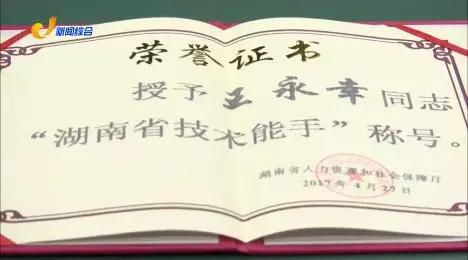 新闻综合
荣誉证书
授予王永幸同志
“湖南省技术能手”称号。
湖南省人力资源和社会保障厅
2017年4月27日